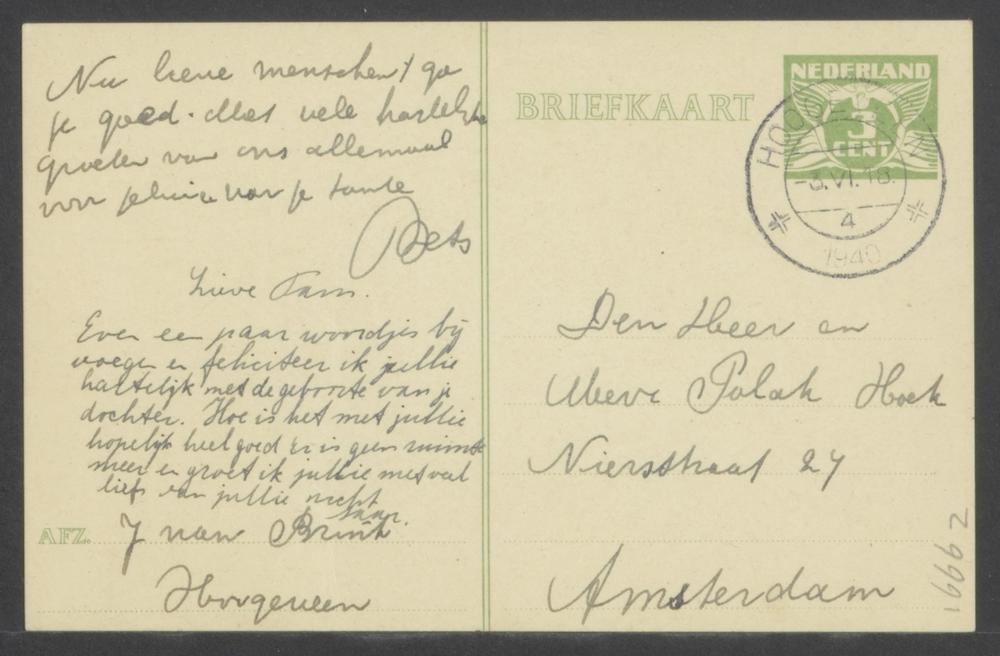 Nu lieve menschen 't ga
je goed. Met vele hartelijke
groeten van ons allemaal
voor jelui van je tante
Bets
Lieve Fam.
Even een paar woordjes bij
voegen en feliciteer ik jullie
hartelijk met de geboorte van je
dochter. Hoe is het met jullie
hopelijk heel goed Er is geen ruimte
meer en groet ik jullie met veel
liefs van jullie nicht
Saar.
AFZ. J van Brink
Hoogeveen
BRIEFKAART
NEDERLAND
3
CENT
-3.VI.18.
4
1940
Den Heer en
Mevr Polak Hoek
Niersstraat 27
Amsterdam
16662